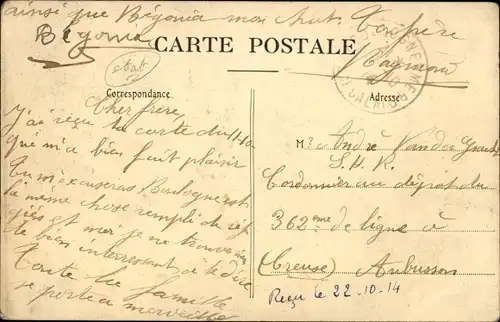 ainsi que Bégonia mon chat. Ton frère
Bégonia
Raymond
CARTE POSTALE
Correspondance
Adresse
Cher frère,
J'ai reçu ta carte du 11-10-
qui m'a bien fait plaisir
Tu m'excuseras Boulogne est
la même chose rempli de réfu
giés et moi je ne trouve rien
de bien interressant à te dire
Toute la famille
se porte à merveille
Mr André
S.H.R.
Cordonnier au dépot du
362ème de ligne à
(Creuse) Aubusson
Reçu le 22-10-14